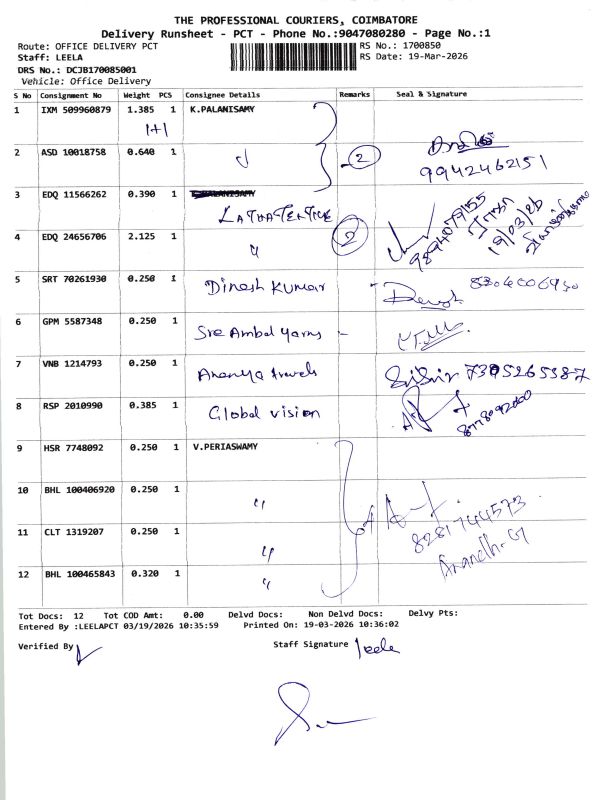 THE PROFESSIONAL COURIERS, COIMBATORE
Delivery Runsheet - PCT - Phone No.:9047080280 - Page No.:1
Route: OFFICE DELIVERY PCT
RS No.: 1700850
Staff: LEELA
RS Date: 19-Mar-2026
DRS No.: DCJB170085001
Vehicle: Office Delivery
S No Consignment No Weight PCS Consignee Details Remarks Seal & Signature
1 IXM 509960879 1.385 1 K.PALANISAMY
1+1
2 ASD 10018758 0.640 1 2
9942462151
3 EDQ 11566262 0.390 1
9894079155
19/03/26
4 EDQ 24656706 2.125 1 " 2
5 SRT 70261930 0.250 1 Dinesh Kumar
6 GPM 5587348 0.250 1 Sre Ambal yarns
7 VNB 1214793 0.250 1 Ananya travels 7395265387
8 RSP 2010990 0.385 1 Global vision
9 HSR 7748092 0.250 1 V.PERIASWAMY
10 BHL 100406920 0.250 1 "
8281744573
11 CLT 1319207 0.250 1 "
Anandh.G
12 BHL 100465843 0.320 1 "
Tot Docs: 12 Tot COD Amt: 0.00 Delvd Docs: Non Delvd Docs: Delvy Pts:
Entered By :LEELAPCT 03/19/2026 10:35:59 Printed On: 19-03-2026 10:36:02
Verified By
Staff Signature leela